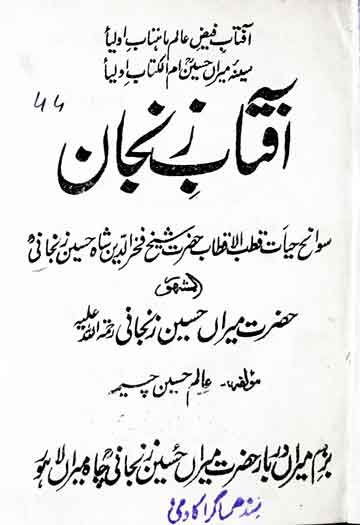 آفتاب فیض عالم ماہتاب اولیاؒ
سیدنا میراں حسینؒ ام الکتاب اولیاؒ
44
آفتاب زنجان
سوانح حیات قطب الاقطاب حضرت شیخ فخر الدین شاہ حسین زنجانیؒ
المشہور
حضرت میراں حسین زنجانی رحمۃ اللہ علیہ
مؤلفہ:- عالم حسین چیمہ
بزم میراں دربار حضرت میراں حسین زنجانی چاہ میراں لاہور
سندھ ساگر اکادمی